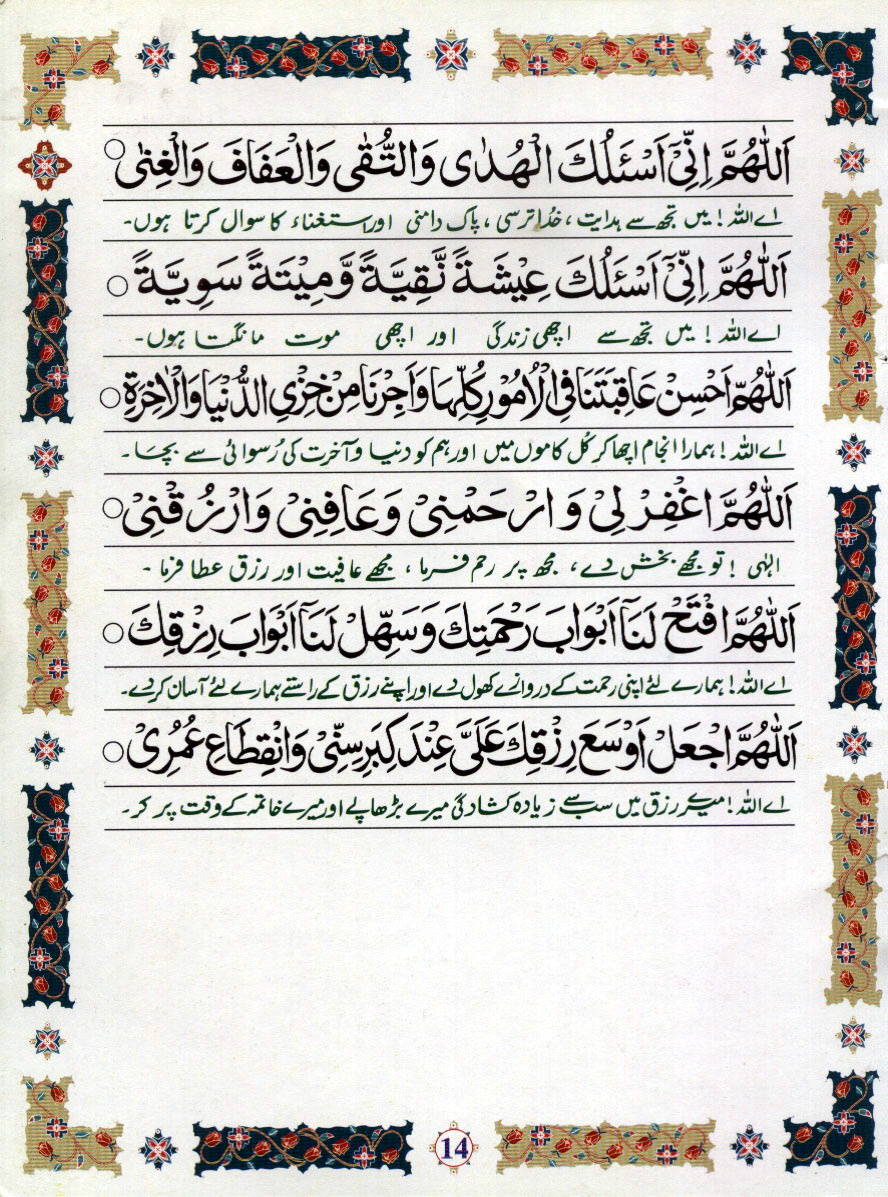 اَللّٰهُمَّ اِنِّیْۤ اَسْئَلُكَ الْهُدٰی وَالتُّقٰی وَالْعَفَافَ وَالْغِنٰی ○
اے اللہ! میں تجھ سے ہدایت، خدا ترسی، پاک دامنی اور استغناء کا سوال کرتا ہوں۔
اَللّٰهُمَّ اِنِّیْۤ اَسْئَلُكَ عِیْشَةً نَّقِیَّةً وَّ مِیْتَةً سَوِیَّةً ○
اے اللہ! میں تجھ سے اچھی زندگی اور اچھی موت مانگتا ہوں۔
اَللّٰهُمَّ اَحْسِنْ عَاقِبَتَنَا فِی الْاُمُوْرِ كُلِّهَا وَاَجِرْنَا مِنْ خِزْیِ الدُّنْیَا وَالْاٰخِرَةِ ○
اے اللہ! ہمارا انجام اچھا کر کُل کاموں میں اور ہم کو دنیا و آخرت کی رُسوائی سے بچا۔
اَللّٰهُمَّ اغْفِرْ لِیْ وَ ارْحَمْنِیْ وَ عَافِنِیْ وَ ارْزُقْنِیْ ○
الہٰی! تو مجھے بخش دے، مجھ پر رحم فرما، مجھے عافیت اور رزق عطا فرما۔
اَللّٰهُمَّ افْتَحْ لَنَاۤ اَبْوَابَ رَحْمَتِكَ وَ سَهِّلْ لَنَاۤ اَبْوَابَ رِزْقِكَ ○
اے اللہ! ہمارے لئے اپنی رحمت کے دروازے کھول دے اور اپنے رزق کے راستے ہمارے لئے آسان کر دے۔
اَللّٰهُمَّ اجْعَلْ اَوْسَعَ رِزْقِكَ عَلَیَّ عِنْدَ كِبَرِ سِنِّیْ وَانْقِطَاعِ عُمُرِیْ ○
اے اللہ! میرے رزق میں سب سے زیادہ کشادگی میرے بڑھاپے اور میرے خاتمہ کے وقت پر کر۔
14